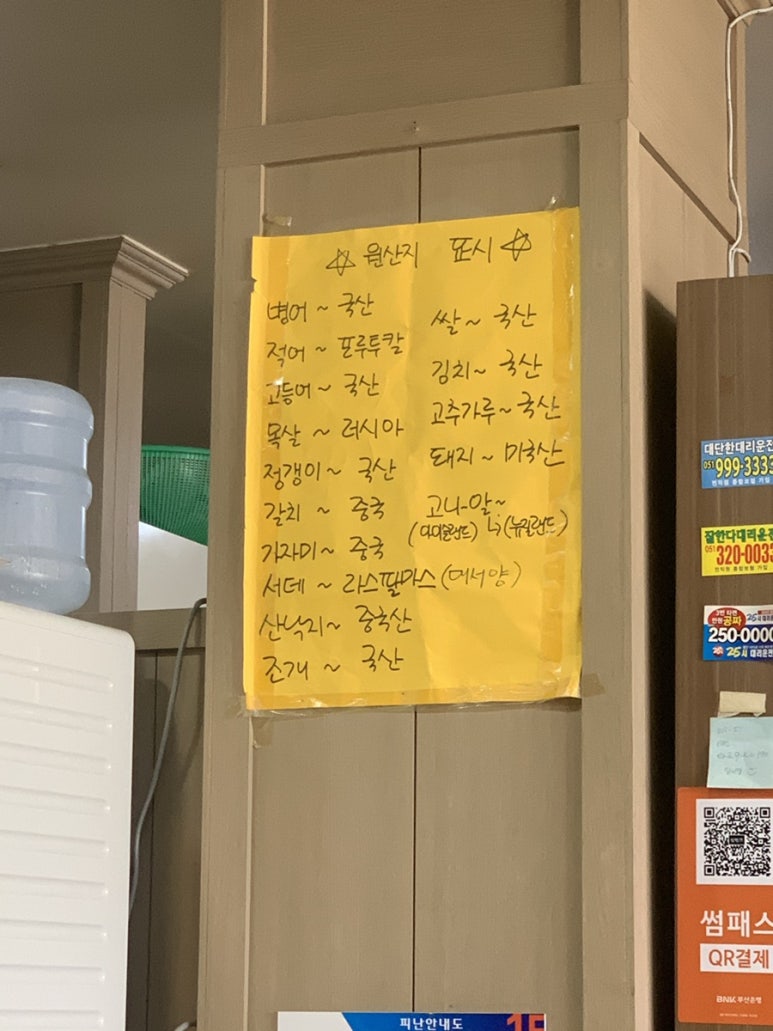 ☆ 원산지 표시 ☆
병어 ~ 국산
적어 ~ 포루투칼
고등어 ~ 국산
목살 ~ 러시아
정갱이 ~ 국산
갈치 ~ 중국
가자미 ~ 중국
서데 ~ 라스팔마스 (대서양)
산낙지 ~ 중국산
조개 ~ 국산
쌀 ~ 국산
김치 ~ 국산
고추가루 ~ 국산
돼지 ~ 미국산
고니-알~
↳(뉴질랜드)
대단한대리운전
051 999-3333
잘한다대리운전
051 320-0033
250-0000
25시 대리운전
썸패스
QR결제
BNK 부산은행
피난안내도